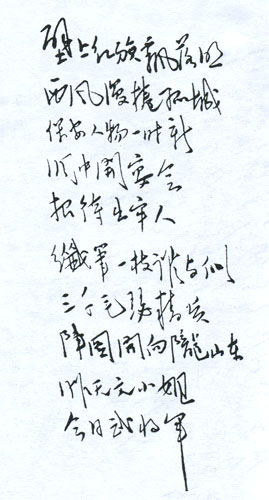 壁上红旗飘落照
西风漫捲孤城
保安人物一时新
洞中开宴会
招待出牢人
纤笔一枝谁与似
三千毛瑟精兵
阵图开向陇山东
昨天文小姐
今日武将军